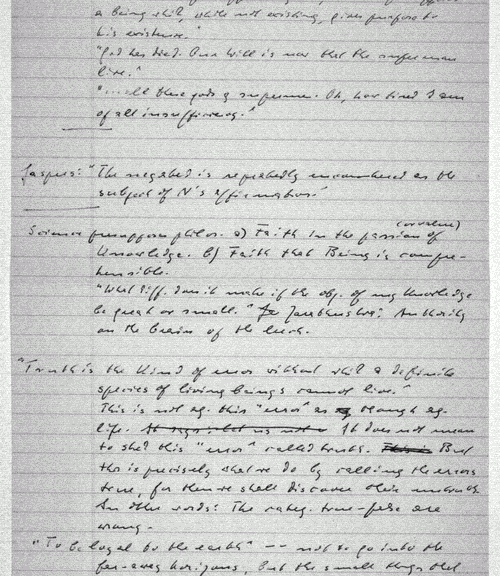 a being which, while not existing, gives purpose to
his existence."
"God has died. Our will is now that the superman
live."
all these gods supreme. Oh, how tired I am
of all insufficiency."
Jaspers: "The negated is repeatedly encountered as the
subject of N's affirmation."
(or value)
Science presupposes philos. a) Faith in the passion of
Knowledge. b) Faith that Being is compre-
hensible.
"What diff. does it make if the obj. of my knowledge
be great or small." Zarathustra: Authority
on the brain of the leech.
"Truth is the kind of error without which a definite
species of living beings cannot live."
This is not ag. this "error" as though ag.
life. It does not mean
to shed this "error" called truth. But
this is precisely what we do by calling the errors
true, for then we shall discover their untruth.
In other words: The categ. true-false are
wrong.
"To be loyal to the earth" -- not to go into the
far-away horizons, but the small things that